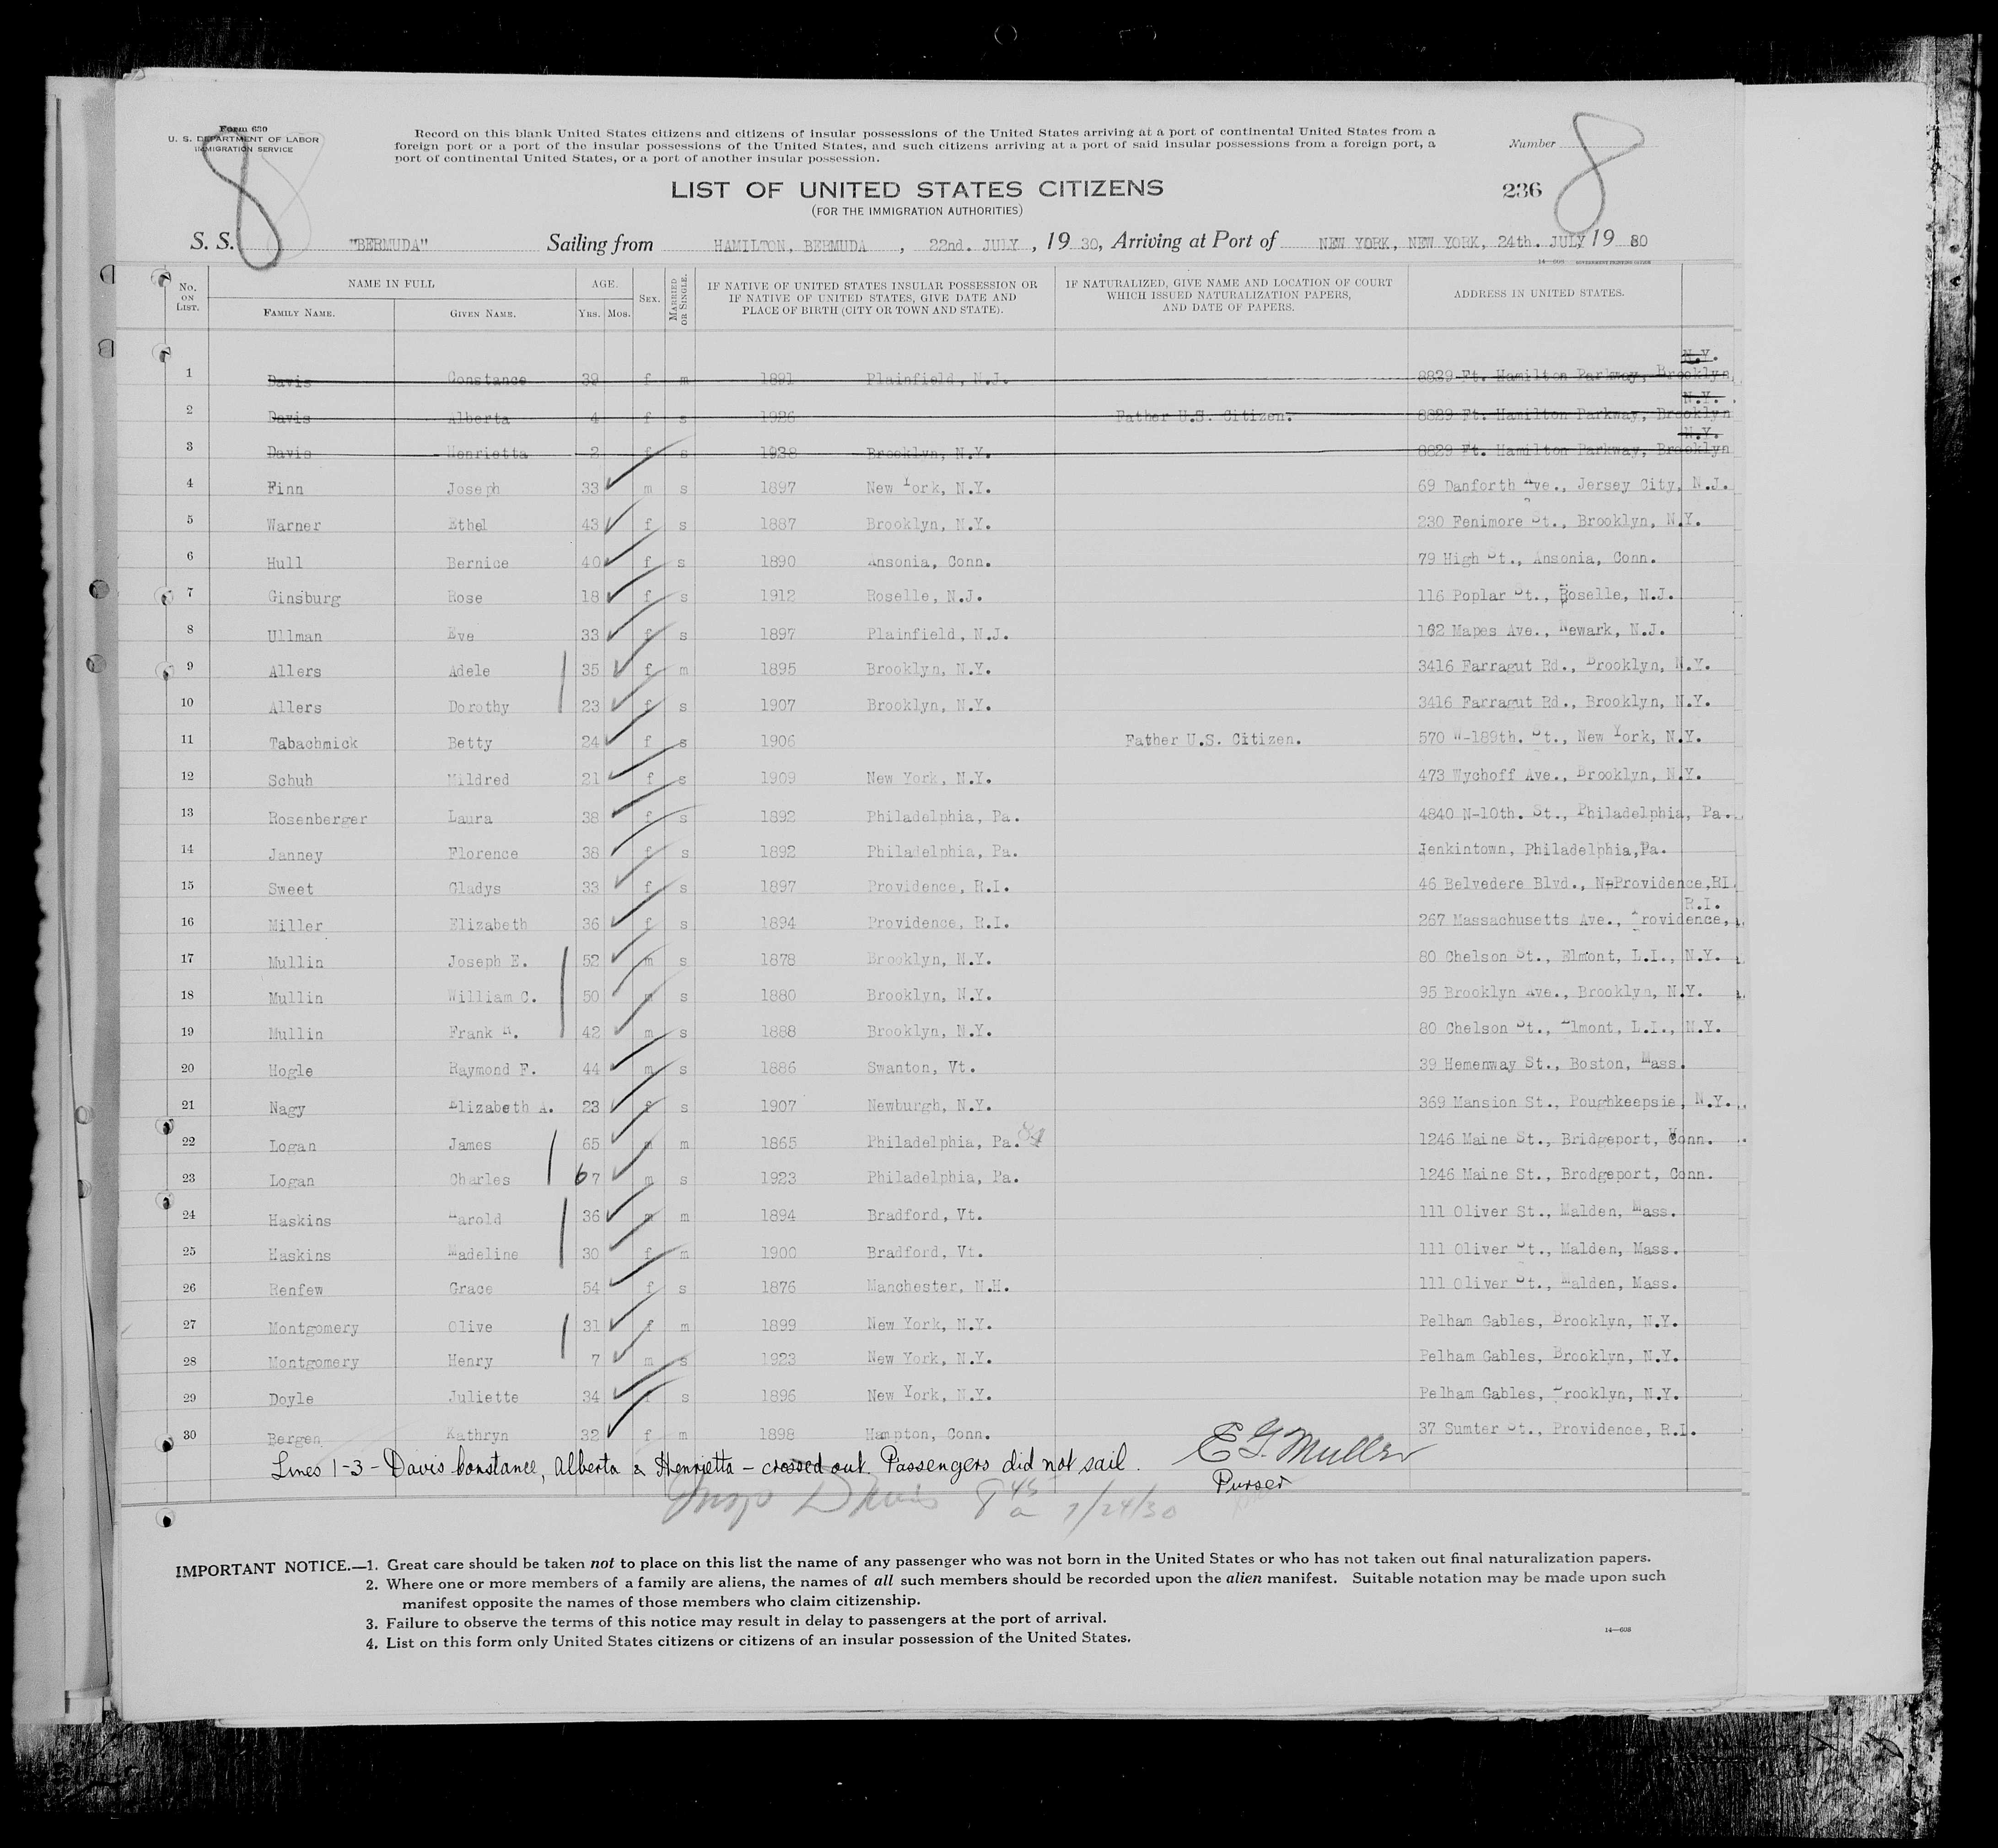 Form 630
U. S. DEPARTMENT OF LABOR
IMMIGRATION SERVICE
8
Record on this blank United States citizens and citizens of insular possessions of the United States arriving at a port of continental United States from a
foreign port or a port of the insular possessions of the United States, and such citizens arriving at a port of said insular possessions from a foreign port, a
port of continental United States, or a port of another insular possession.
Number
8
236
LIST OF UNITED STATES CITIZENS
(FOR THE IMMIGRATION AUTHORITIES)
S. S. "BERMUDA" Sailing from HAMILTON, BERMUDA , 22nd. JULY , 19 30, Arriving at Port of NEW YORK, NEW YORK, 24th. JULY 19 30
No. ON LIST. NAME IN FULL FAMILY NAME. GIVEN NAME. AGE. YRS. MOS. SEX. MARRIED OR SINGLE. IF NATIVE OF UNITED STATES INSULAR POSSESSION OR IF NATIVE OF UNITED STATES, GIVE DATE AND PLACE OF BIRTH (CITY OR TOWN AND STATE). IF NATURALIZED, GIVE NAME AND LOCATION OF COURT WHICH ISSUED NATURALIZATION PAPERS, AND DATE OF PAPERS. ADDRESS IN UNITED STATES.
1 Davis Constance 39 f m 1891 Plainfield, N.J. 8829 Ft. Hamilton Parkway, Brooklyn, N.Y.
2 Davis Alberta 4 f s 1926 Father U.S. Citizen. 8829 Ft. Hamilton Parkway, Brooklyn N.Y.
3 Davis Henrietta 2 f s 1928 Brooklyn, N.Y. 8829 Ft. Hamilton Parkway, Brooklyn N.Y.
4 Finn Joseph 33 m s 1897 New York, N.Y. 69 Danforth Ave., Jersey City, N.J.
5 Warner Ethel 43 f s 1887 Brooklyn, N.Y. 230 Fenimore St., Brooklyn, N.Y.
6 Hull Bernice 40 f s 1890 Ansonia, Conn. 79 High St., Ansonia, Conn.
7 Ginsburg Rose 18 f s 1912 Roselle, N.J. 116 Poplar St., Roselle, N.J.
8 Ullman Eve 33 f s 1897 Plainfield, N.J. 162 Mapes Ave., Newark, N.J.
9 Allers Adele 35 f m 1895 Brooklyn, N.Y. 3416 Farragut Rd., Brooklyn, N.Y.
10 Allers Dorothy 23 f s 1907 Brooklyn, N.Y. 3416 Farragut Rd., Brooklyn, N.Y.
11 Tabachmick Betty 24 f s 1906 Father U.S. Citizen. 570 W-189th. St., New York, N.Y.
12 Schuh Mildred 21 f s 1909 New York, N.Y. 473 Wychoff Ave., Brooklyn, N.Y.
13 Rosenberger Laura 38 f s 1892 Philadelphia, Pa. 4840 N-10th. St., Philadelphia, Pa.
14 Janney Florence 38 f s 1892 Philadelphia, Pa. Jenkintown, Philadelphia,Pa.
15 Sweet Gladys 33 f s 1897 Providence, R.I. 46 Belvedere Blvd., N-Providence,RI
16 Miller Elizabeth 36 f s 1894 Providence, R.I. 267 Massachusetts Ave., Providence, R.I.
17 Mullin Joseph E. 52 m s 1878 Brooklyn, N.Y. 80 Chelson St., Elmont, L.I., N.Y.
18 Mullin William C. 50 m s 1880 Brooklyn, N.Y. 95 Brooklyn Ave., Brooklyn, N.Y.
19 Mullin Frank 42 m s 1888 Brooklyn, N.Y. 80 Chelson St., Elmont, L.I., N.Y.
20 Hogle Raymond F. 44 m s 1886 Swanton, Vt. 39 Hemenway St., Boston, Mass.
21 Nagy Elizabeth A. 23 f s 1907 Newburgh, N.Y. 369 Mansion St., Poughkeepsie, N.Y.
22 Logan James 65 m m 1865 Philadelphia, Pa. 1246 Maine St., Bridgeport, Conn.
23 Logan Charles 67 m s 1923 Philadelphia, Pa. 1246 Maine St., Brodgeport, Conn.
24 Haskins Harold 36 m m 1894 Bradford, Vt. 111 Oliver St., Malden, Mass.
25 Haskins Madeline 30 f m 1900 Bradford, Vt. 111 Oliver St., Malden, Mass.
26 Renfew Grace 54 f s 1876 Manchester, N.H. 111 Oliver St., Malden, Mass.
27 Montgomery Olive 31 f m 1899 New York, N.Y. Pelham Gables, Brooklyn, N.Y.
28 Montgomery Henry 7 m s 1923 New York, N.Y. Pelham Gables, Brooklyn, N.Y.
29 Doyle Juliette 34 f s 1896 New York, N.Y. Pelham Gables, Brooklyn, N.Y.
30 Bergen Kathryn 32 f m 1898 Hampton, Conn. 37 Sumter St., Providence, R.I.
Lines 1-3 - Davis Constance, Alberta & Henrietta - crossed out. Passengers did not sail. E G. Muller
Purser
7/24/30
IMPORTANT NOTICE.—1. Great care should be taken not to place on this list the name of any passenger who was not born in the United States or who has not taken out final naturalization papers.
2. Where one or more members of a family are aliens, the names of all such members should be recorded upon the alien manifest. Suitable notation may be made upon such
manifest opposite the names of those members who claim citizenship.
3. Failure to observe the terms of this notice may result in delay to passengers at the port of arrival.
4. List on this form only United States citizens or citizens of an insular possession of the United States.
14—608